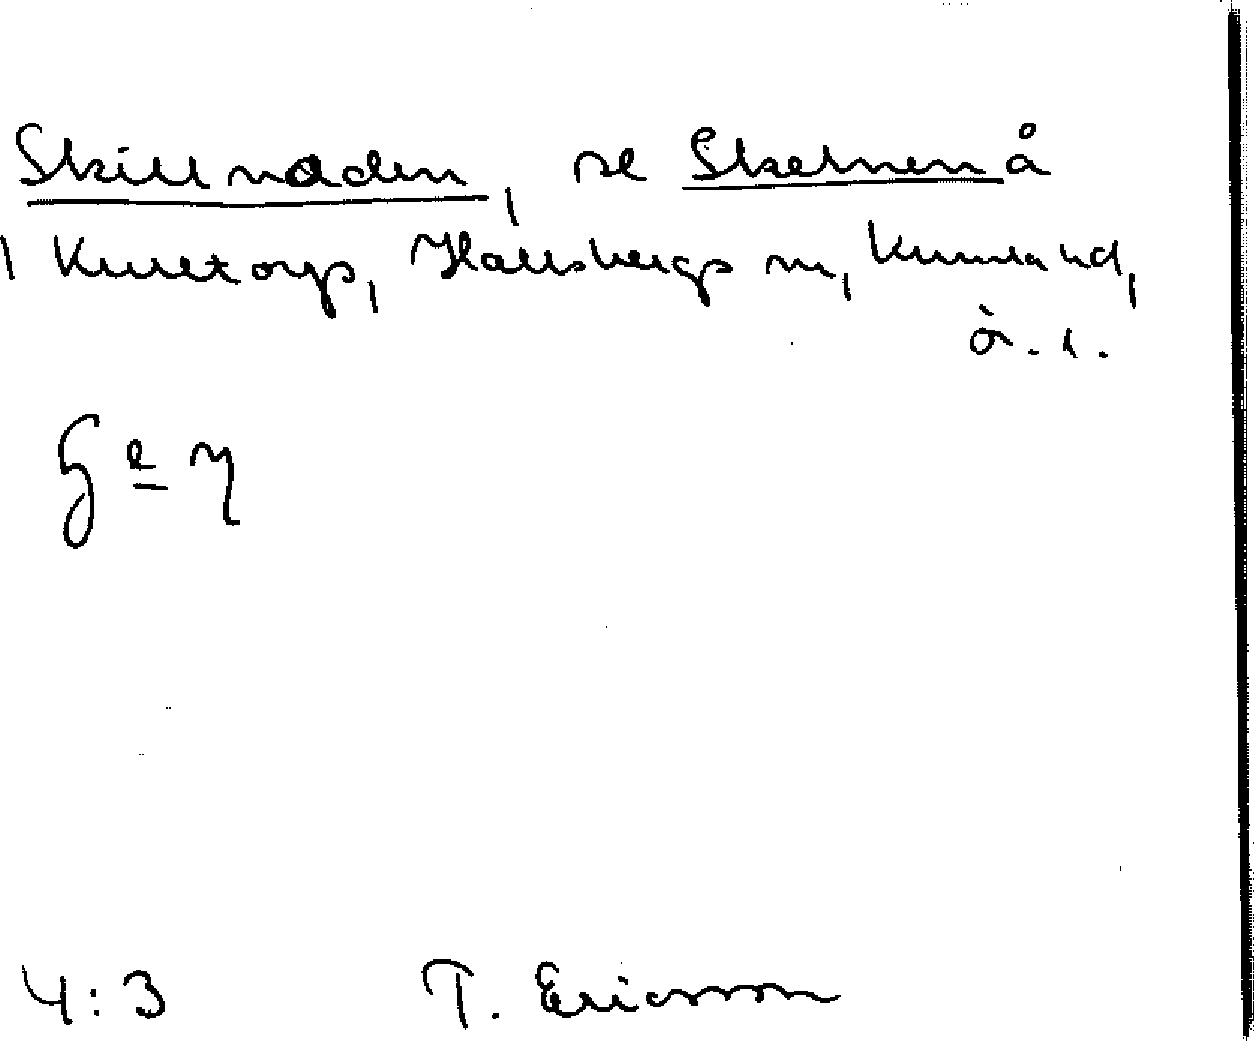 Skillnaden, se Skelnen å
Kulltorp, Hallsbergs m, Kumla hd,
Ö. l.
4:3 T. Ericsson